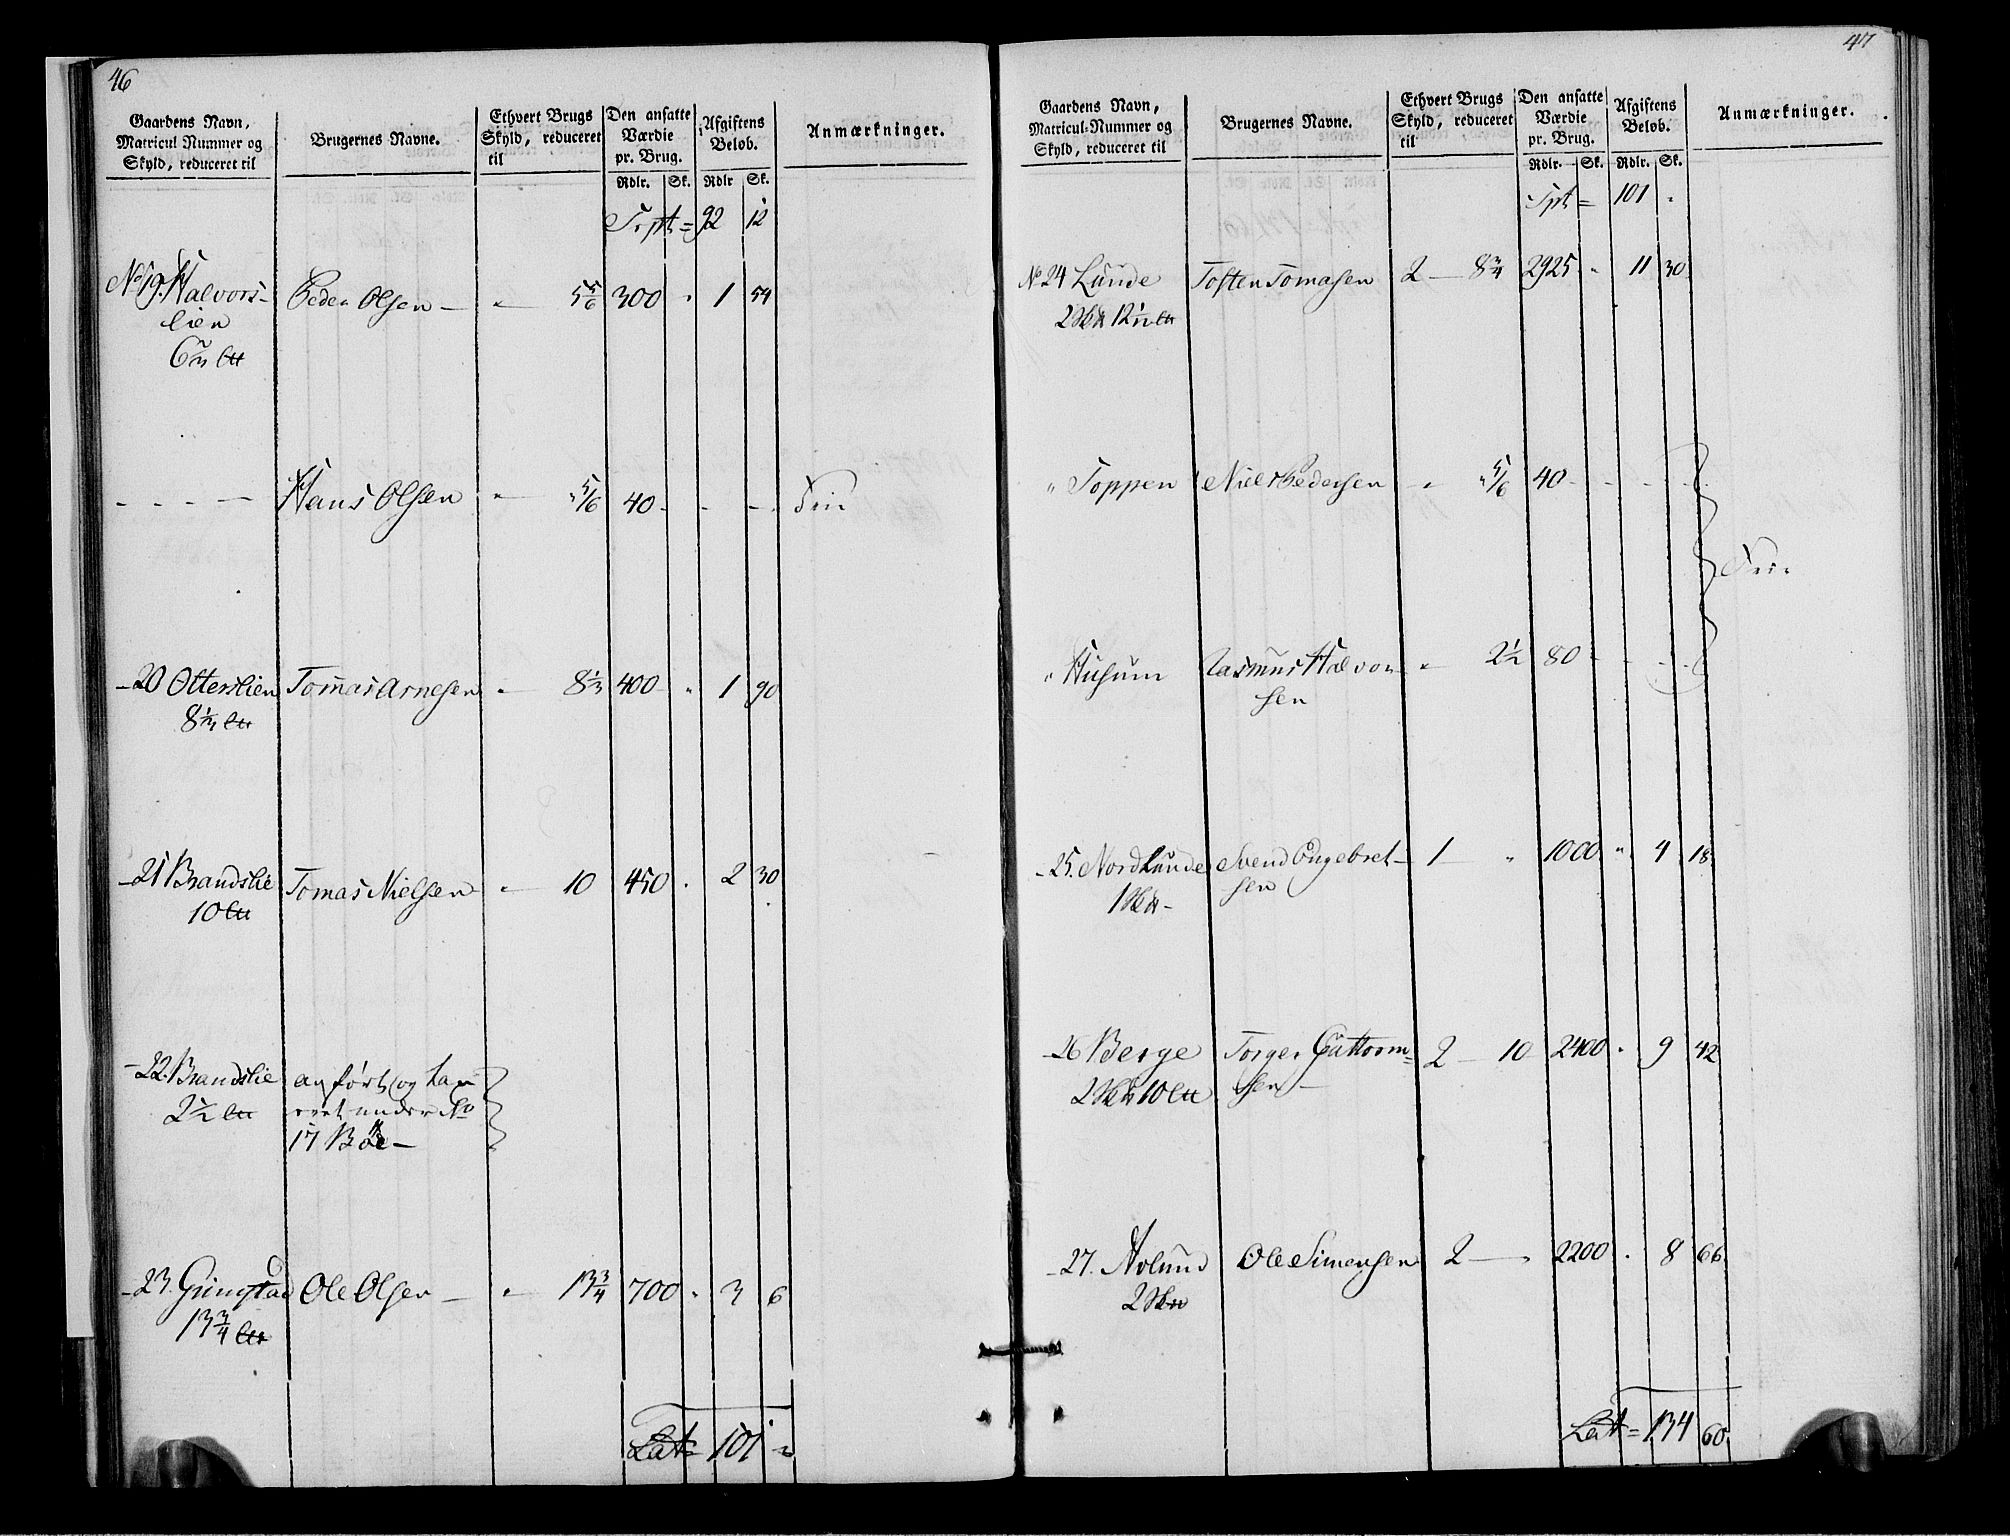 46
Gaardens Navn, Matricul Nummer og Skyld, reduceret til | Brugernes Navne. | Ethvert Brugs Skyld, reduceret til | Den ansatte Værdie pr. Brug. Rdlr. Sk. | Afgiftens Beløb. Rdlr Sk. | Anmærkninger.
Trspt = 92 12
No 19. Halvors- Peder Olsen — " — 5 5/6 300 " 1 54
lien
6 2/3 L℔
— — — — Hans Olsen " — " 5/6 40 - - - Frie
- 20 Otterslien Tomas Arnesen " — 8 1/3 400 " 1 90
8 1/3 L℔
- 21 Brandslie Tomas Nielsen " — 10 450 " 2 30
10 L℔
- 22. Brandslie anført og tax
2 1/2 L℔ eret under No
17 Bøe —
- 23. Gringstad Ole Olsen — " — 13 3/4 700 " 3 6
13 3/4 L℔
Lat = 101 "
47
Gaardens Navn, Matricul-Nummer og Skyld, reduceret til | Brugernes Navne. | Ethvert Brugs Skyld, reduceret til | Den ansatte Værdie pr. Brug. Rdlr. Sk. | Afgiftens Beløb. Rdlr. Sk. | Anmærkninger.
Tspt = 101 "
No 24 Lunde Tosten Tomasen 2 — 8 3/4 2925 " 11 30
2 12 1/12 L℔
" Toppen Niels Pedersen " " 5/6 40 - - -
Frie
" Husum Rasmus Halvor- " 2 1/2 80 - - -
sen
- 25. Nordlunde Svend Engebret- 1 — " 1000 " 4 18
1 sen
- 26 Berge Torger Guttorm- 2 — 10 2400 " 9 42
2 10 L℔ sen —
- 27. Aolund Ole Simensen 2 — " 2200 " 8 66
2
Lat = 134 60